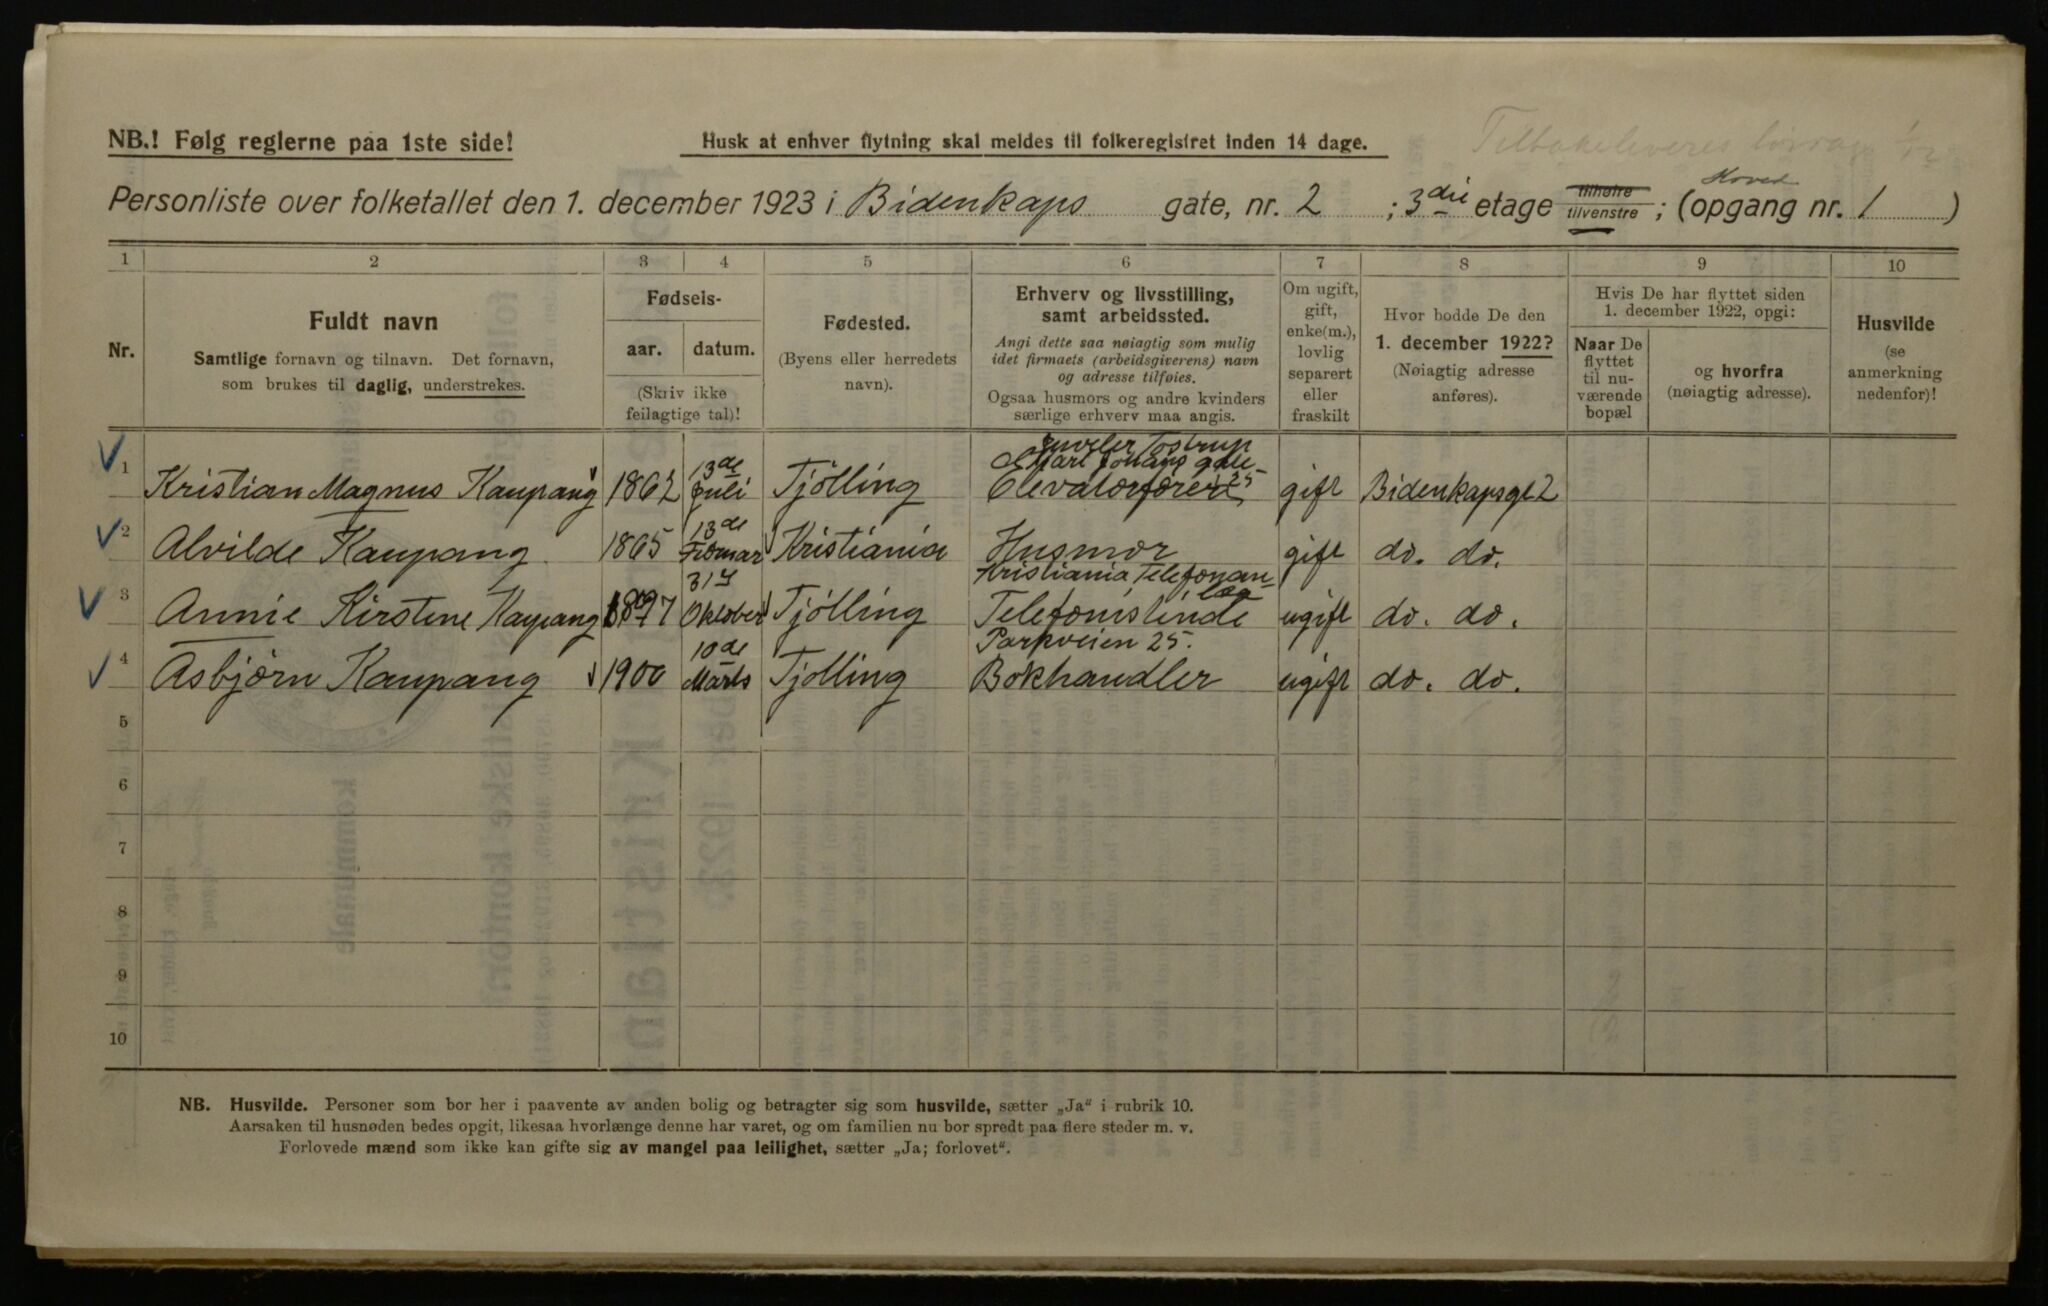 NB.! Følg reglerne paa 1ste side!
Husk at enhver flytning skal meldes til folkeregistret inden 14 dage.
Tilbakeleveres
Personliste over folketallet den 1. december 1923 i Bidenkaps gate, nr. 2 ; 3die etage tilhøire tilvenstre ; (opgang nr. 1 )
1 2 3 4 5 6 7 8 9 10
Nr.
Fuldt navn
Samtlige fornavn og tilnavn. Det fornavn,
som brukes til daglig, understrekes.
Fødsels-
aar. datum.
(Skriv ikke
feilagtige tal)!
Fødested.
(Byens eller herredets
navn).
Erhverv og livsstilling,
samt arbeidssted.
Angi dette saa nøiagtig som mulig
idet firmaets (arbeidsgiverens) navn
og adresse tilføies.
Ogsaa husmors og andre kvinders
særlige erhverv maa angis.
Om ugift,
gift,
enke(m.),
lovlig
separert
eller
fraskilt
Hvor bodde De den
1. december 1922?
(Nøiagtig adresse
anføres).
Hvis De har flyttet siden
1. december 1922, opgi:
Naar De
flyttet
til nu-
værende
bopæl
og hvorfra
(nøiagtig adresse).
Husvilde
(se
anmerkning
nedenfor)!
Juveler Tostrup
Karl Johans gate 25
1 Kristian Magnus Kaupang 1862 13de Juli Tjölling Elevatorfører gift Bidenkapsgt 2
2 Alvilde Kaupang 1865 13de Kristiania Husmor gift do. do.
Kristiania Telefonan-
læg
3 Annie Kirstine Kaupang 1897 31te Oktober Tjölling Telefonistinde ugift do. do.
Parkveien 25.
4 Asbjørn Kaupang 1900 10de Marts Tjölling Bokhandler ugift do. do.
5
6
7
8
9
10
NB. Husvilde. Personer som bor her i paavente av anden bolig og betragter sig som husvilde, sætter „Ja" i rubrik 10.
Aarsaken til husnøden bedes opgit, likesaa hvorlænge denne har varet, og om familien nu bor spredt paa flere steder m. v.
Forlovede mænd som ikke kan gifte sig av mangel paa leilighet, sætter „Ja; forlovet".